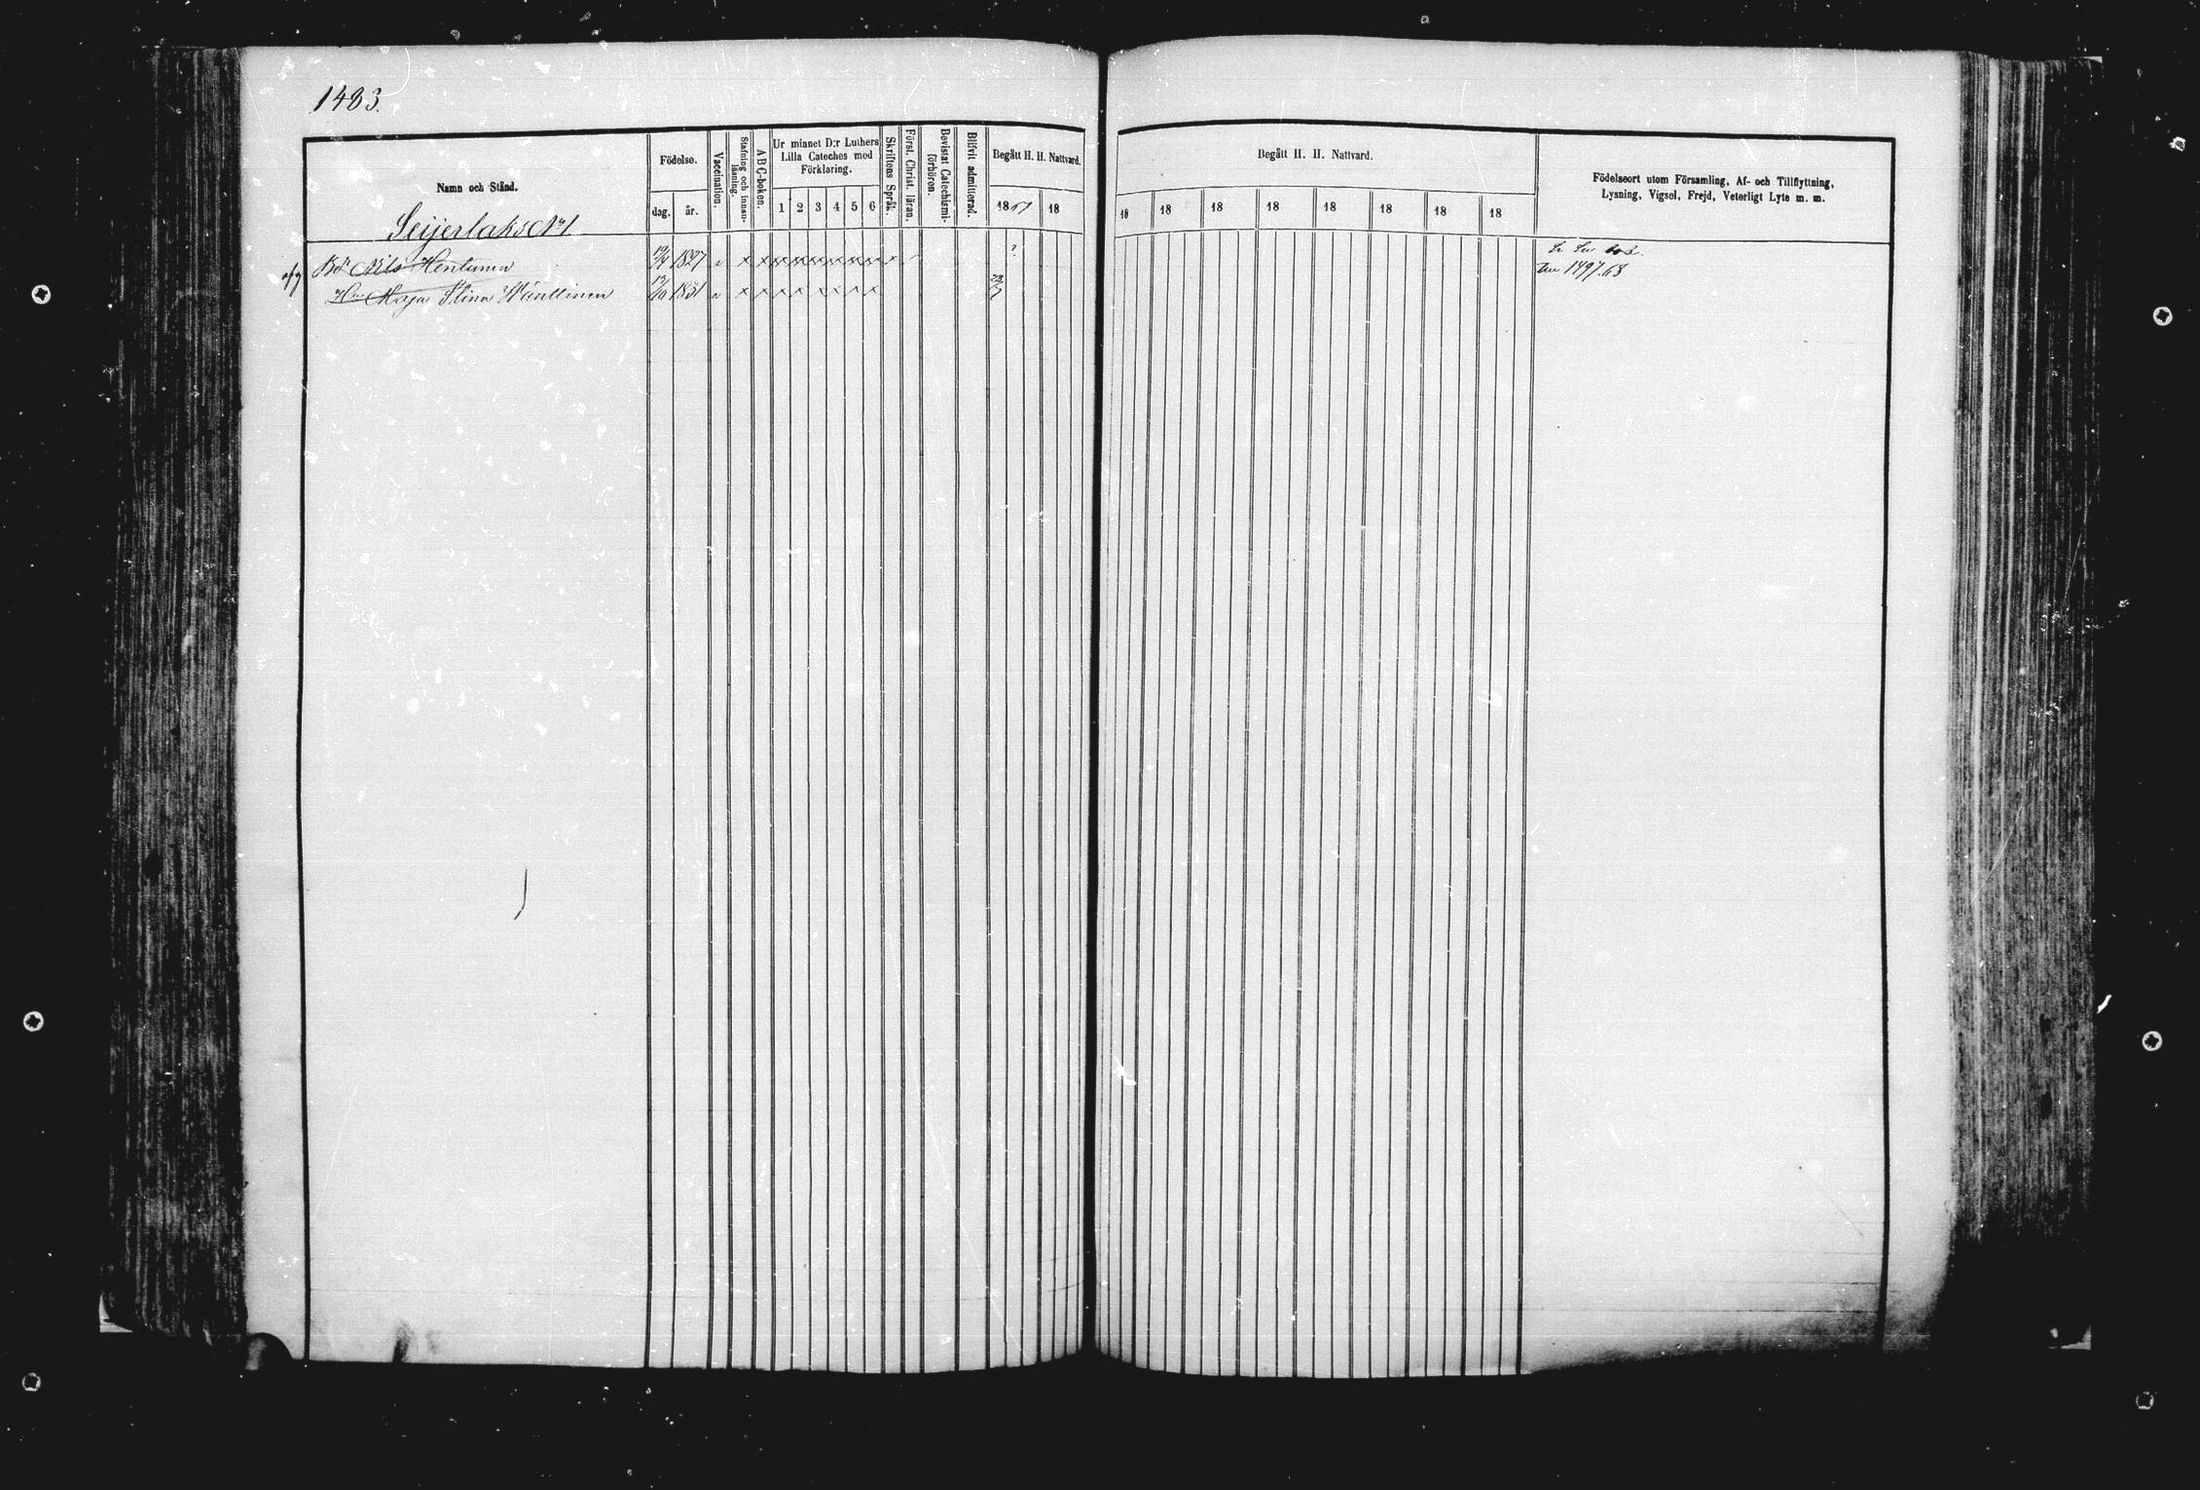 1483.
Namn och Stånd.
Födelse.
dag.
år.
Vaccination.
Stafning och innan-
läsning.
A B C-boken.
Ur minnet D:r Luthers
Lilla Cateches med
Förklaring.
1 2 3 4 5 6
Skriftens Språk.
Förs. Christ. läran.
Bevistat Catechismi-
förhören.
Blifvit admitterad.
Begått H. H. Nattvard.
1867 18
Begått H. H. Nattvard.
18 18 18 18 18 18 18 18
Födelseort utom Församling, Af- och Tillflyttning,
Lysning, Vigsel, Frejd, Veterligt Lyte m. m.
Seijerlaks No 1
Nils Hentunen 1827 v x x x x x x x x x ?
1497.68
Maja Stina Wänttinen 1831 v x x x x x x x x